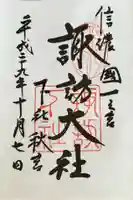 信濃國一之宮
諏訪大社
下社秋宮
平成二九年十月七日